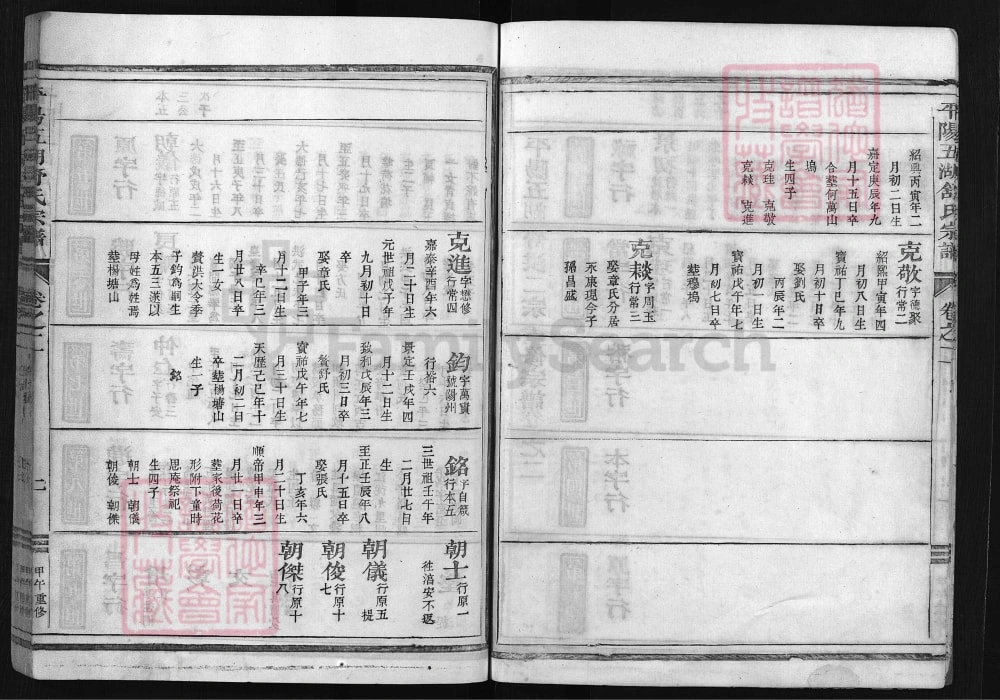 平陽五湖舒氏宗譜
卷之二
紹興丙寅年二
月初二日生
嘉定庚辰年九
月十五日卒
合葬何萬山
塢
生四子
克珪 克敬
克赫 克進
克敬字德聚
行常二
紹熙甲寅年四
月初八日生
寶祐丁巳年九
月初十日卒
娶劉氏
丙辰年二
月初一日生
寶祐戊午年七
月初七日卒
葬穆塢
字周玉
行常三
娶章氏分居
孫昌盛
克進字懋修
行常四
嘉泰辛酉年六
月二十日生
元世祖戊子年
九月初十日
卒
娶章氏
甲子年三
月十二日生
辛巳年三
月廿八日卒
生一女
贅洪大令季
子鈞為嗣生
本五三漢以
母姓為姓焉
葬楊塘山
鈞字萬寳
行裕六
號陽州
景定壬戌年四
月十二日生
致和戊辰年三
月初三日卒
贅舒氏
寶祐戊午年七
月三十日生
天歷己巳年十
二月初二日
卒葬楊塘山
生一子
銘
銘字自箴
行本五
三世祖壬午年
二月廿七日
生
至正壬辰年八
月十五日卒
娶張氏
丁亥年六
月二十日生
順帝甲申年三
月廿一日卒
葬家後荷花
形附下童時
思庵祭祀
生四子
朝士 朝儀
朝俊 朝傑
朝士行原一
往滈安不返
朝儀行原五
提
朝俊行原十
七
朝傑行原十
八
平陽五湖舒氏宗譜
卷之二
二
甲午重修
FamilySearch